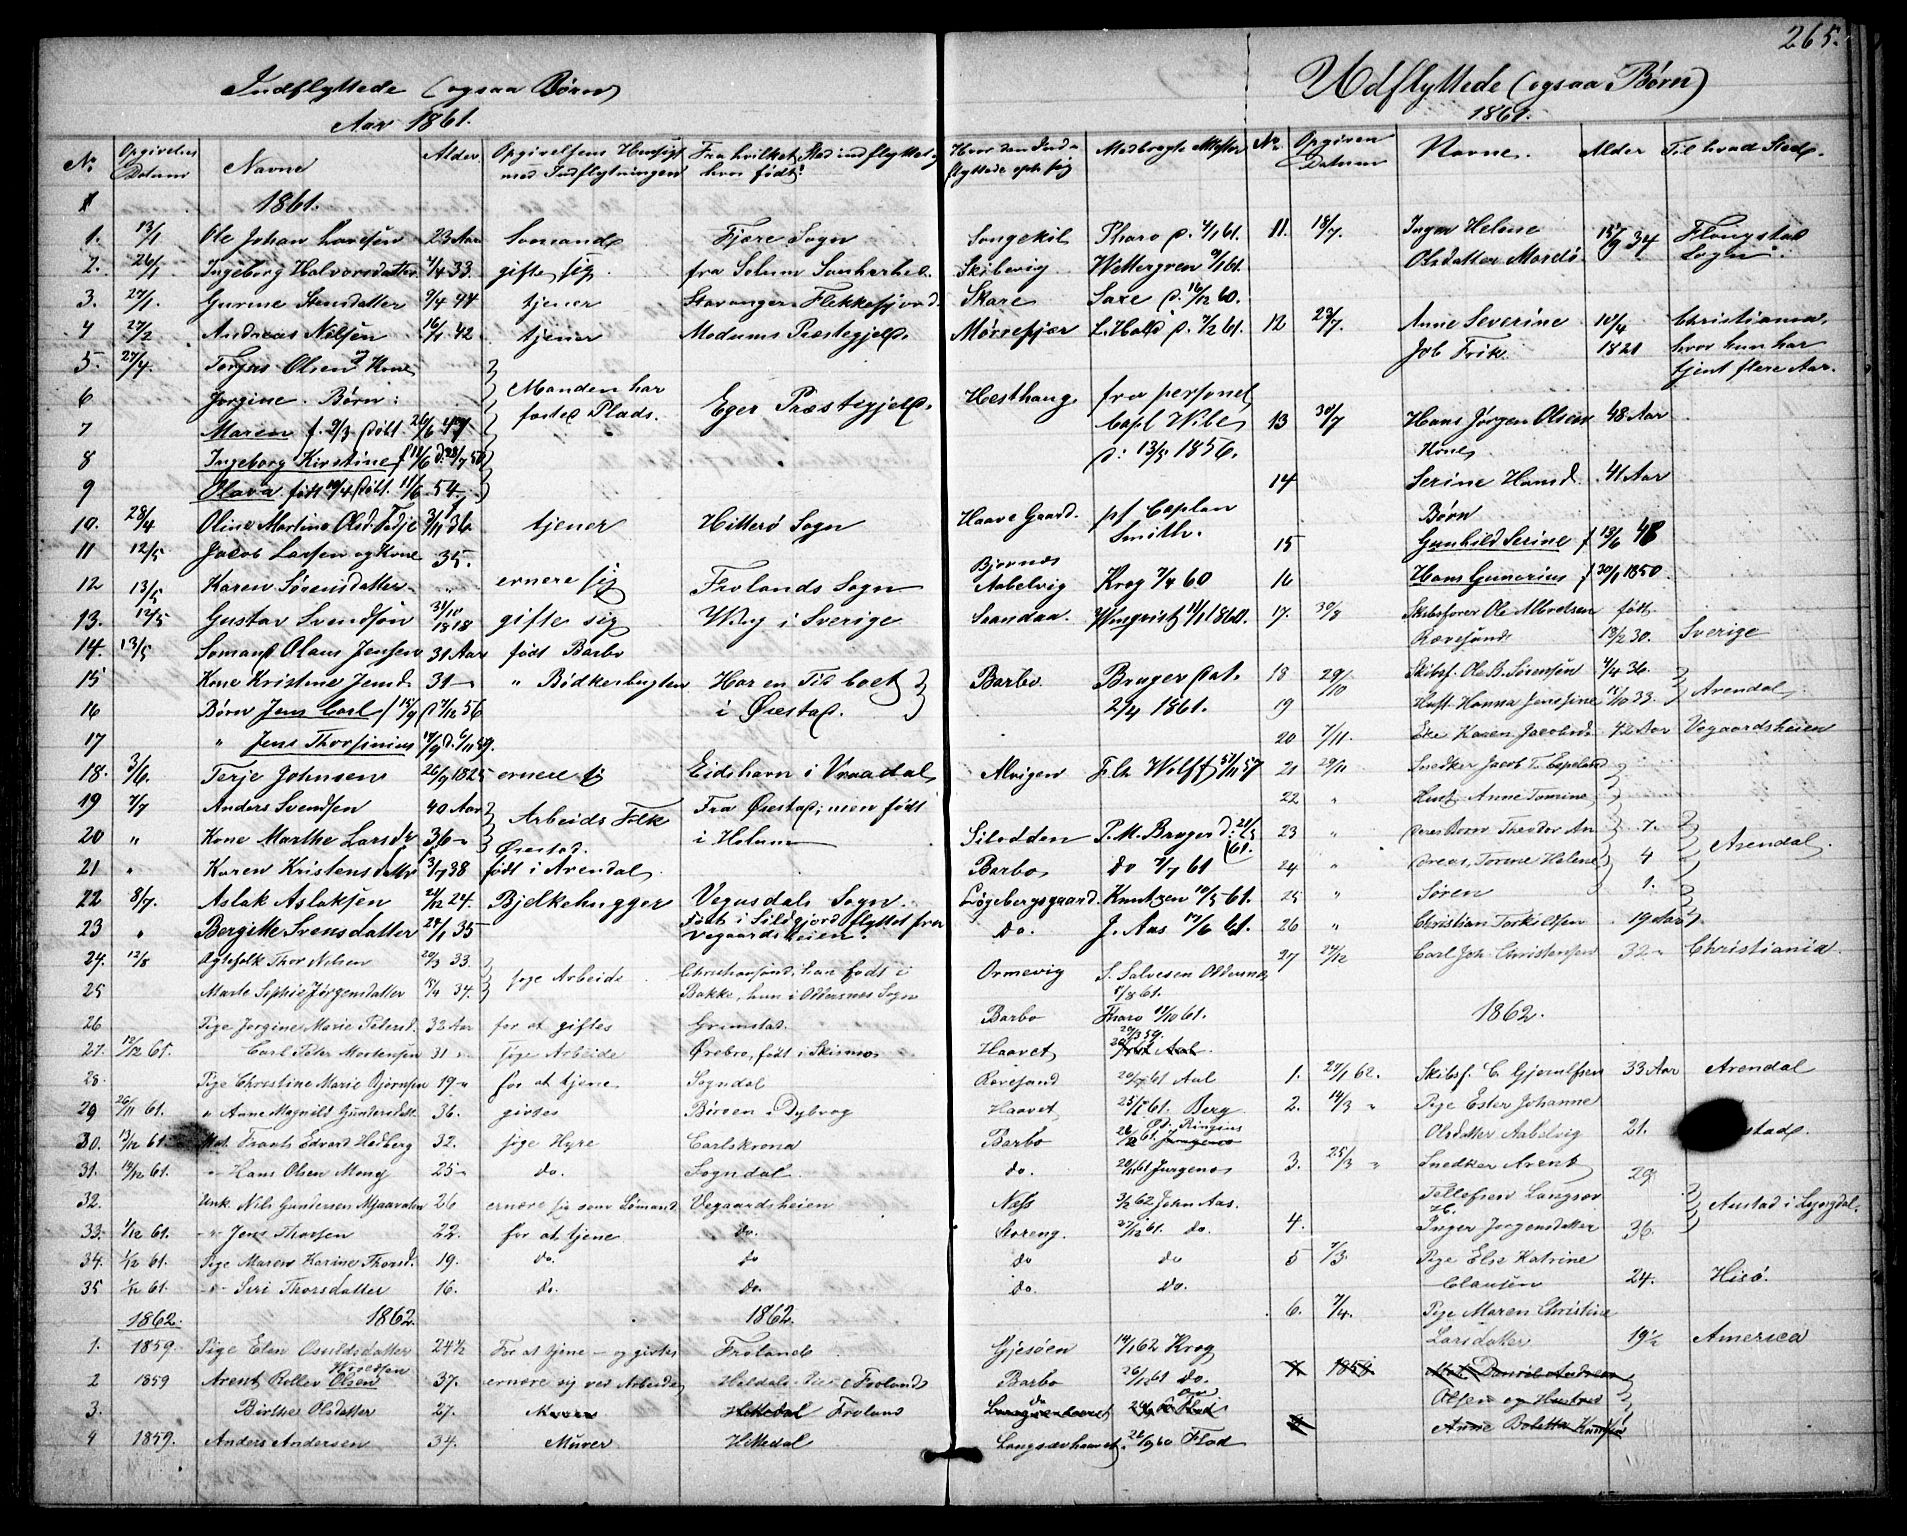 265.
Indflyttede (ogsaa Børn)
Aar 1861.
No Opgivelses Datum Navne Alder Opgivelsens Hensigt med Indflytningen Fra hvilket Sted indflyttet, hvor født? Hvor den Indflyttede opholder sig Medbragte Attester
1861.
1. 13/1 Ole Johan 23 Aar Somand Fjære Sogn Songekil Tharo d. 1/1 61.
2. 26/1 Ingeborg Halvorsdatter 4/4 33. gifte sig fra Solum Skibevig Wettergren 9/1 61.
3. 27/1 Gurine Stensdatter 9/4 44 tjener Stavanger Flekkefjord Skare Saxe d. 16/12 60.
4 27/2 Andreas Nilsen 16/1 42 tjener Modums Præstegjeld. Mørrefjær L. Hald d. 7/2 61.
5. 27/4 Torjus Olsen og Kone
6 Jorgine. Børn: Manden har fæstet Plads. Eger Præstegjeld. Hesthaug fra personel
7 Maren f. 2/3 døbt 26/6 Capl Wibe
8 Ingeborg Kirstine d: 13/5 1856.
9 Olava født 19/4 døbt 11/6 54
10. 28/4 Oline Martine Olsd. 3/11 36 tjener Hitterø Sogn Haave Gaard pf Caplan Smith.
11 12/5 Jacob Larsen og Kone 35. ernere sig Frolands Sogn Bjørnes Aabelvig Krog 7/4 60
12 13/5 Karen Sørensdatter "
13. 12/5 Gustav Svendsøn 31/10 1818 gifte sig i Sverige Sandaa. Wingvist 11/1 1860.
14 13/5 Somand Olaus Jensen 31 Aar født Barbo
15 Kone Kristine Jensd. 31 " Bødkerbugten Har en Tid boet i Øiestad. Barbo. Bruger dat. 2/4 1861.
16 Børn Jens Carl 7/12 56
17 " Jens Thorsinius
18. 3/6. Terje Johnsen 26/9 1825 ernere sig Eidshavn i Vraadal Alvigen F. Ch Wolff 57
19 7/7 Anders Svendsen 40 Aar Arbeids Folk Fra Øiestad; men født
20 " Kone Marthe Larsdr 36 Øiestad. i Holum Silodden P. M. Bruger d. 61.
21 " Karen Kristensdatter 38 født i Arendal Barbo do 7/7 61
22 8/7. Aslak Aslaksen 24/12 24. Bjelkehugger Vegusdals Sogn. Løgebergsgaard Knutzen 19/5 61.
23 " Bergitte Svensdatter 24/1 35 Født i Sildgjord flyttet fra Vegaardsheien. Do. J. Aas 17/6 61.
24. 12/8 Ægtefolk Thor Nilsen 20/3 33. søge Arbeide Christiansand, han født i Ormevig S. Salvesen Oddernes
25 Marte Sophie Jørgensdatter 5/4 34. Bakke, hun i Oddernes Sogn 1/8 61.
26 Pige Jorgine Marie Petersd. 32 Aar for at giftes Grimstad. Barbo Tharo 11/10 61.
27. 12/12 61. Carl Peter Mortensen 31 " søge Arbeide Ørebro, født i Haavet
28. Pige Christine Marie Bjørnsen 19 " for at tjene. Sogndal Revesand 61 Aal
29 26/11 61. " Anne Magnild Gundersdatt. 36. giftes Børeen i Dybvog Haavet 25/1 61. Berg
30. 13/12 61 Mat. Frants Edvard Hedberg 32. søge Hyre Carlskrona Barbo 61.
31. 19/12 61. " Hans Olsen Mong 25 " do. Sogndal. do. 20/11 61 Jurgens
32. Unk. Nils Gundersen Mjaavaten 26 ernære sig som Sømand Vegaardsheien Næss 3/2 62 John Aas.
33. 1/12 61. " Jens Thorsen 22. for at tjene do. Storeng. 27/12 61. do.
34. 1/12 61. Pige Maren Karine Thorsd. 19. do. do do do
35 1/12 61 " Siri Thorsdatter 16. do. do. do. do.
1862. 1862. 1862.
1. 1859 Pige Elen Osuldsdatter 24½ For at tjene - og giftes Froland Gjesøen 14/1 62 Krog
2 1859 Arent Keller Olsen 37. ernære sig ved Arbeide Froland Barbo 26/1 61 do.
3. Birthe Olsdatter 27. Froland do
4 1859. Anders Andersen 34. Murer Hittedal Langsævhaavet. 26/9 60 Flod
Udflyttede (ogsaa Børn)
1861.
No. Opgiven Datum Navne. Alder Til hvad Sted.
11. 18/7. Inger Helene Olsdatter Merdø. 34 Flougstad Sogn.
12 29/7. Anne Severine Job Frik. 10/4 1821 Christiania, hvor hun har tjent flere Aar.
13 30/7 Hans Jørgen Olsen 48 Aar
Kone
14 Serine Hansd. 41 Aar
Børn
15 Gunhild Serine f 13/6 48
16 Hans Gunerius f 30/1 1850.
17. 30/8 Skibsfører Ole Albretsen Revesand født 13/2 30. Sverige
18 29/10 Skibsf. Ole B. Sørensen 4/4 36. Arendal.
19 Hust. Hanna Jensine 14/10 33.
20 7/11. Eke Karen Jacobsd. 42 Aar Vegaardsheien
21 29/11 Snedker Jacob T. Espeland
22 " Hust. Anne Tomine
23 " deres Børn Theodor An- 7. Arendal.
24 " dreas, Torine Helene 4
25 " Søren 1.
26 " Christian Torkildsen 19 Aar
27 24/12 Carl Joh. Christensen 32 " Christiania.
1862.
1. 27/1 62. Skibsf. C. Gjerulfsen 33 Aar Arendal
2. 14/3 " Pige Ester Johanne Olsdatter Aabelvig 21. stad.
3. 25/3 " Snedker Arent Tellefsen Langsæv 29 Austad i Lyngdal.
4. H. Inger Jorgensdatter 36.
5 7/3. Pige Else Katrine Clausen 24. Hisø.
6. 7/4. Pige Maren Christine Larsdatter 19½ America
1859 Mat. Daniel Andreas Olsen og Hustru
Anne Boletta Knudsen